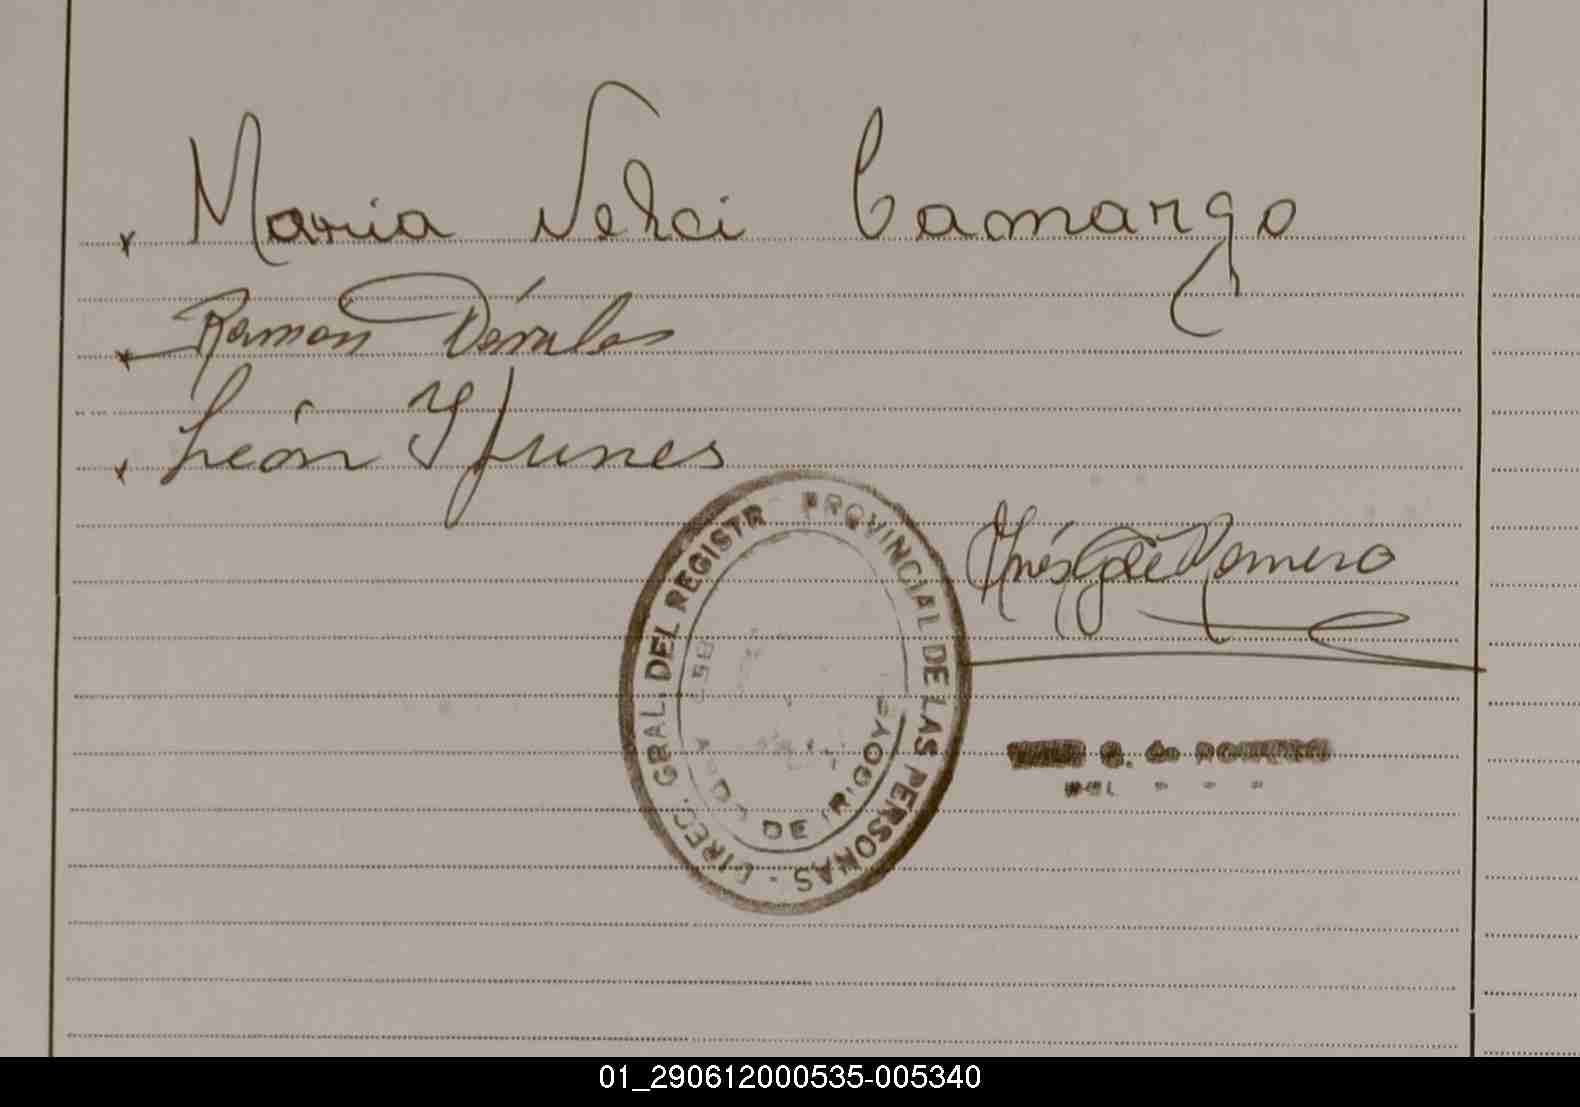 Maria Nelci Camargo
Ramon Dávalos
León Y funes
Inés G de Romero
DIREC. GRAL. DEL REGISTR PROVINCIAL DE LAS PERSONAS -
DE IRIGOYE
G. de ROMERO
01_290612000535-005340